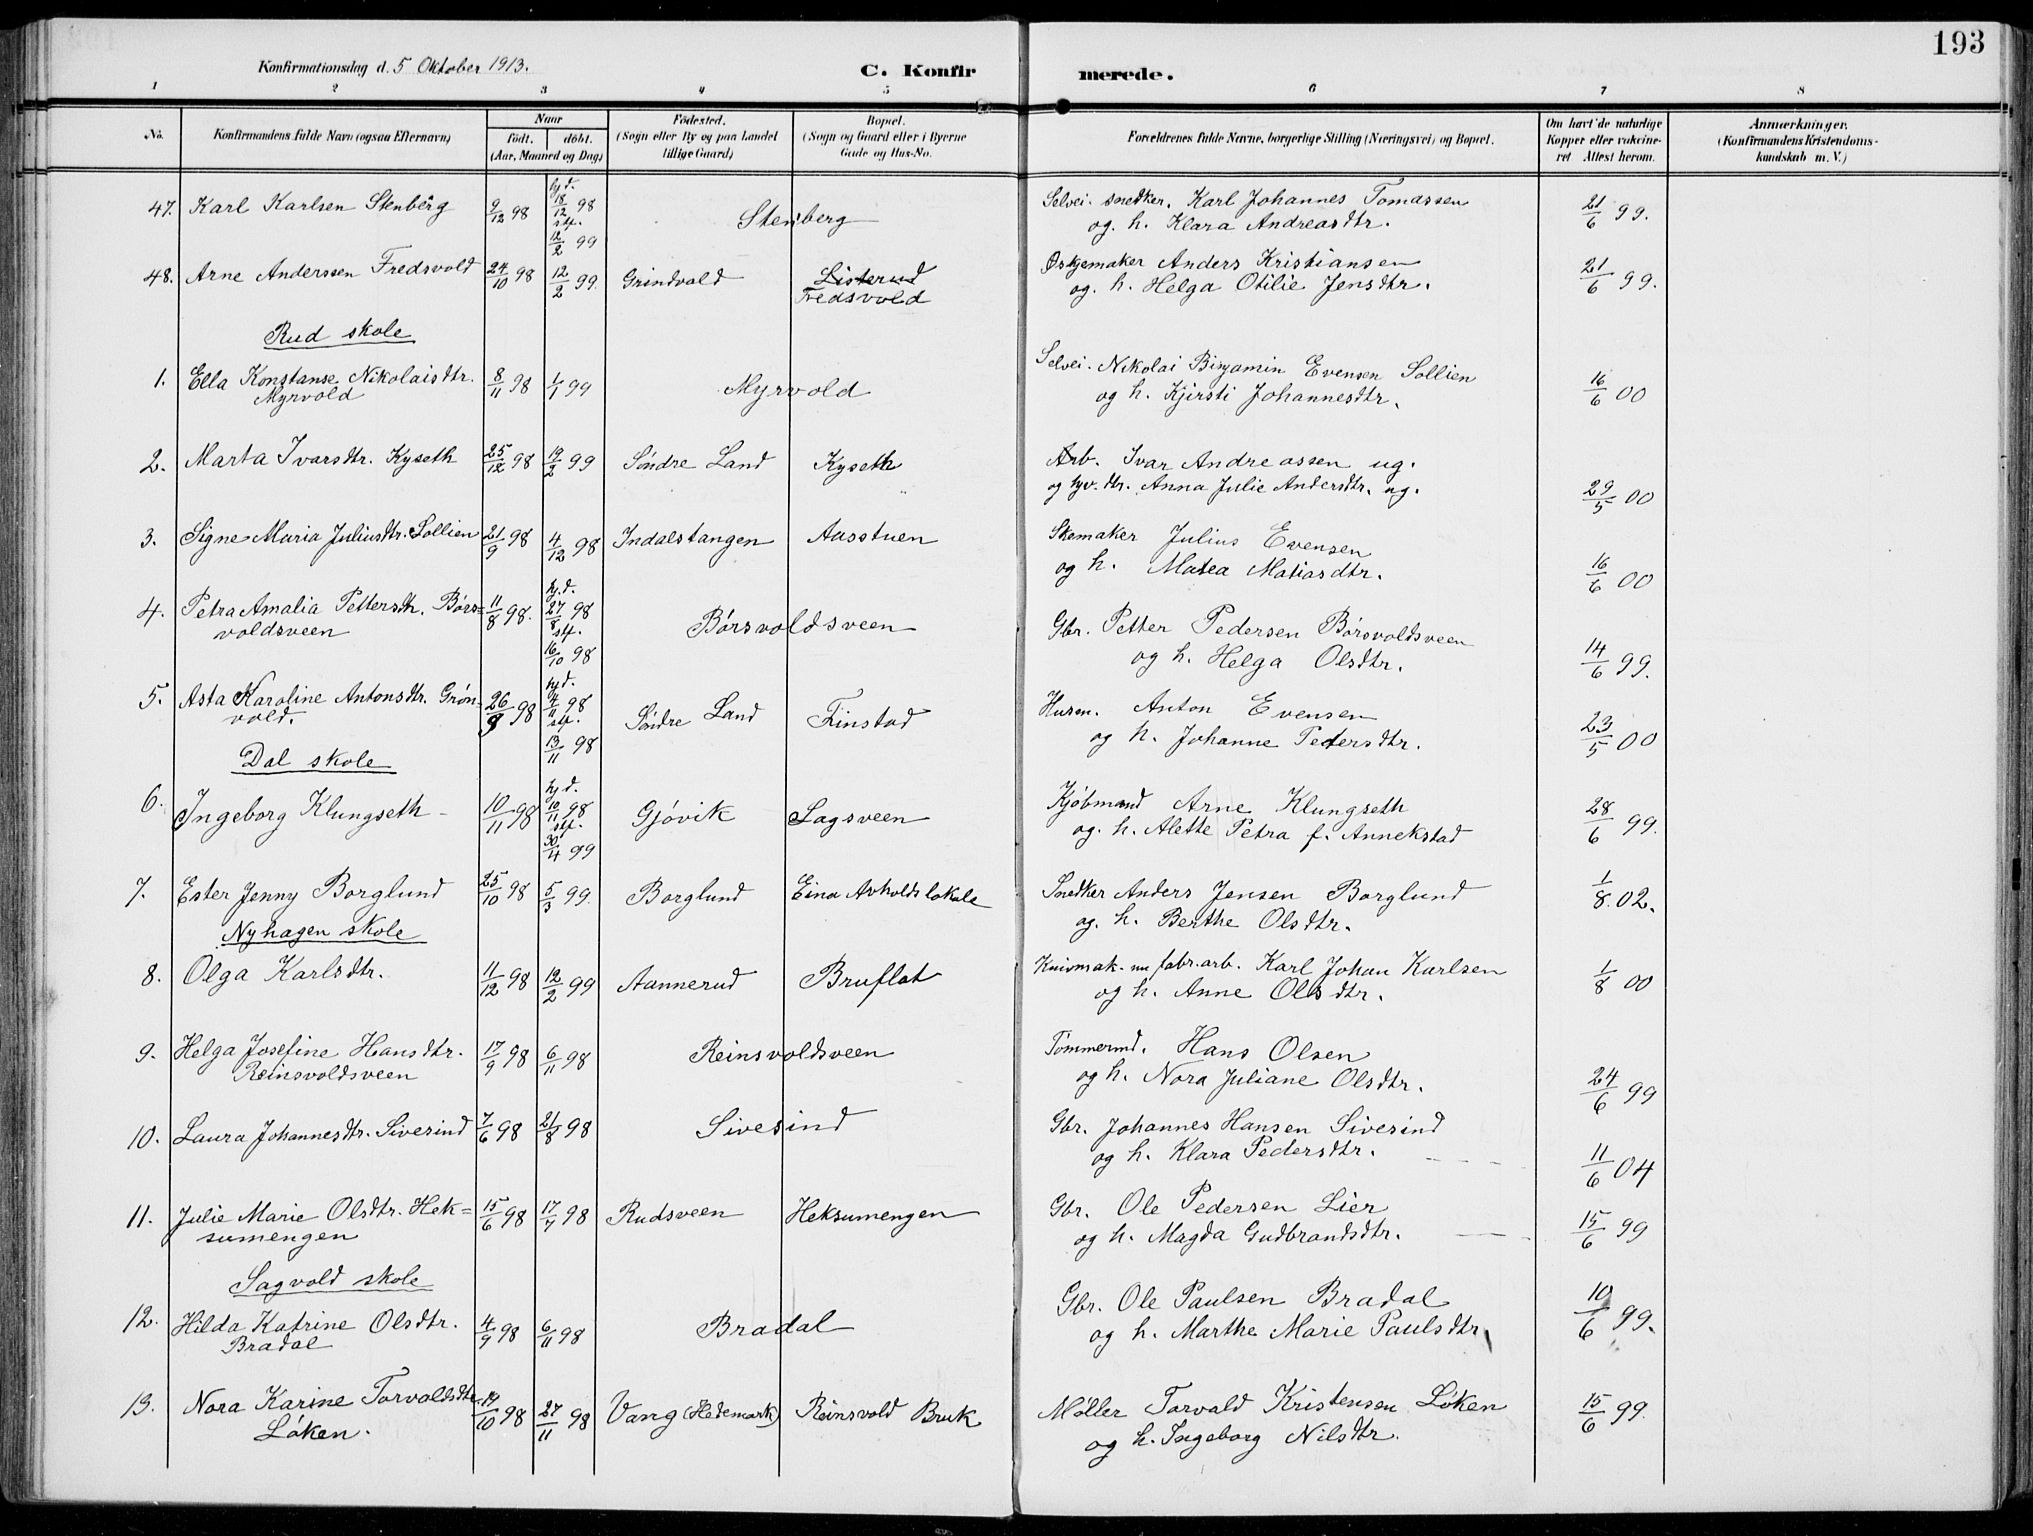 193
Konfirmationsdag d. 5 Oktober 1913.
C. Konfir merede.
1 2 3 4 5 6 7 8
No. Konfirmandens fulde Navn (ogsaa Efternavn) Naar født. døbt. (Aar, Maaned og Dag) Fødested. (Sogn eller By og paa Landet tillige Gaard) Bopæl. (Sogn og Gaard eller i Byerne Gade og Hus-No. Forældrenes fulde Navne, borgerlige Stilling (Næringsvei) og Bopæl. Om havt de naturlige Kopper eller vaccineret Attest herom. Anmærkninger. (Konfirmandens Kristendomskundskab m. V.)
47. Karl Karlsen Stenberg 9/12 98 hj.d. 18/12 98 stf. 12/2 99 Stenberg Selvei. snedker. Karl Johannes Tomassen 21/6 99.
og. h. Klara Andreasdtr.
48. Arne Anderssen Fredsvold 24/10 98 12/2 99. Grindvold Listerud Øskjemaker Anders Kristiansen 21/6 99.
Fredsvold og. h. Helga Otilie Jensdtr.
Rud skole
1. Ella Konstanse Nikolaisdtr. 8/11 98 1/1 99 Myrvold Selvei. Nikolai Binjamin Evensen Sollien 16/6 00
Myrvold og h. Kjersti Johannesdtr.
2. Marta Ivarsdtr. Kyseth 25/12 98 19/2 99 Søndre Land Kyseth Arb. Ivar Andreassen ug.
og tyv. dtr. Anna Julie Andersdtr. ug. 29/5 00
3. Signe Maria Juliusdtr. Sollien 21/9 98 4/12 98 Indalstangen Aasstuen Skomaker Julius Evensen
og h. Matea Matiasdtr. 16/6 00
4. Petra Amalia Pettersdtr. Børs= 11/8 98. hj.d. 27/8 98 stf. 16/10 98 Børsvoldsveen Gbr. Petter Pedersen Børsvoldsveen
voldsveen og h. Helga Olsdtr. 14/6 99.
5. Asta Karoline Antonsdtr. Grøn= 26/9 98 hj.d. 4/11 98 stf. 13/11 98 Søndre Land Finstad Husm. Anton Evensen
vold. og h. Johanne Petersdtr. 23/5 00
Dal skole
6. Ingeborg Klungseth 10/11 98 hj.d. 10/11 98 stf. 30/4 99 Gjøvik Lagsveen Kjøbmand Arne Klungseth 28/6 99.
og. h. Alette Petra f. Annekstad
7. Ester Jenny Borglund 25/10 98 5/3 99. Borglund Eina Avholdslokale Snedker Anders Jensen Borglund 1/8 02.
og. h. Berthe Olsdtr.
Nyhagen skole
8. Olga Karlsdtr. 11/12 98 12/2 99 Aannerud Bruflat Knivmak. nu fabr.arb. Karl Johan Karlsen 1/8 00
og h. Anne Olsdtr.
9. Helga Josefine Hansdtr. 17/9 98 6/11 98 Reinsvoldsveen Tømmermd. Hans Olsen
Reinsvoldsveen og h. Nora Juliane Olsdtr. 24/6 99
10. Laura Johannesdtr. Sivesind 7/6 98 21/8 98 Sivesind Gbr. Johannes Hansen Sivesind
og h. Klara Pedersdtr. 11/6 04
11. Julie Marie Olsdtr. Hek= 15/6 98 17/7 98 Rudsveen Heksumengen Gbr. Ole Pedersen Lier
sumengen og h. Magda Gudbrandsdtr. 15/6 99
Sagvold skole
12. Hilda Katrine Olsdtr. 4/9 98 6/11 98 Bradal Gbr. Ole Paulsen Bradal 10/6 99.
Bradal og h. Marthe Marie Paulsdtr.
13. Nora Karine Torvoldsdtr. 19/10 98 27/11 98 Vang (Hedemark) Reinsvold Bruk Møller Torvald Kristensen Løken 15/6 99.
Løken. og h. Ingeborg Nilsdtr.